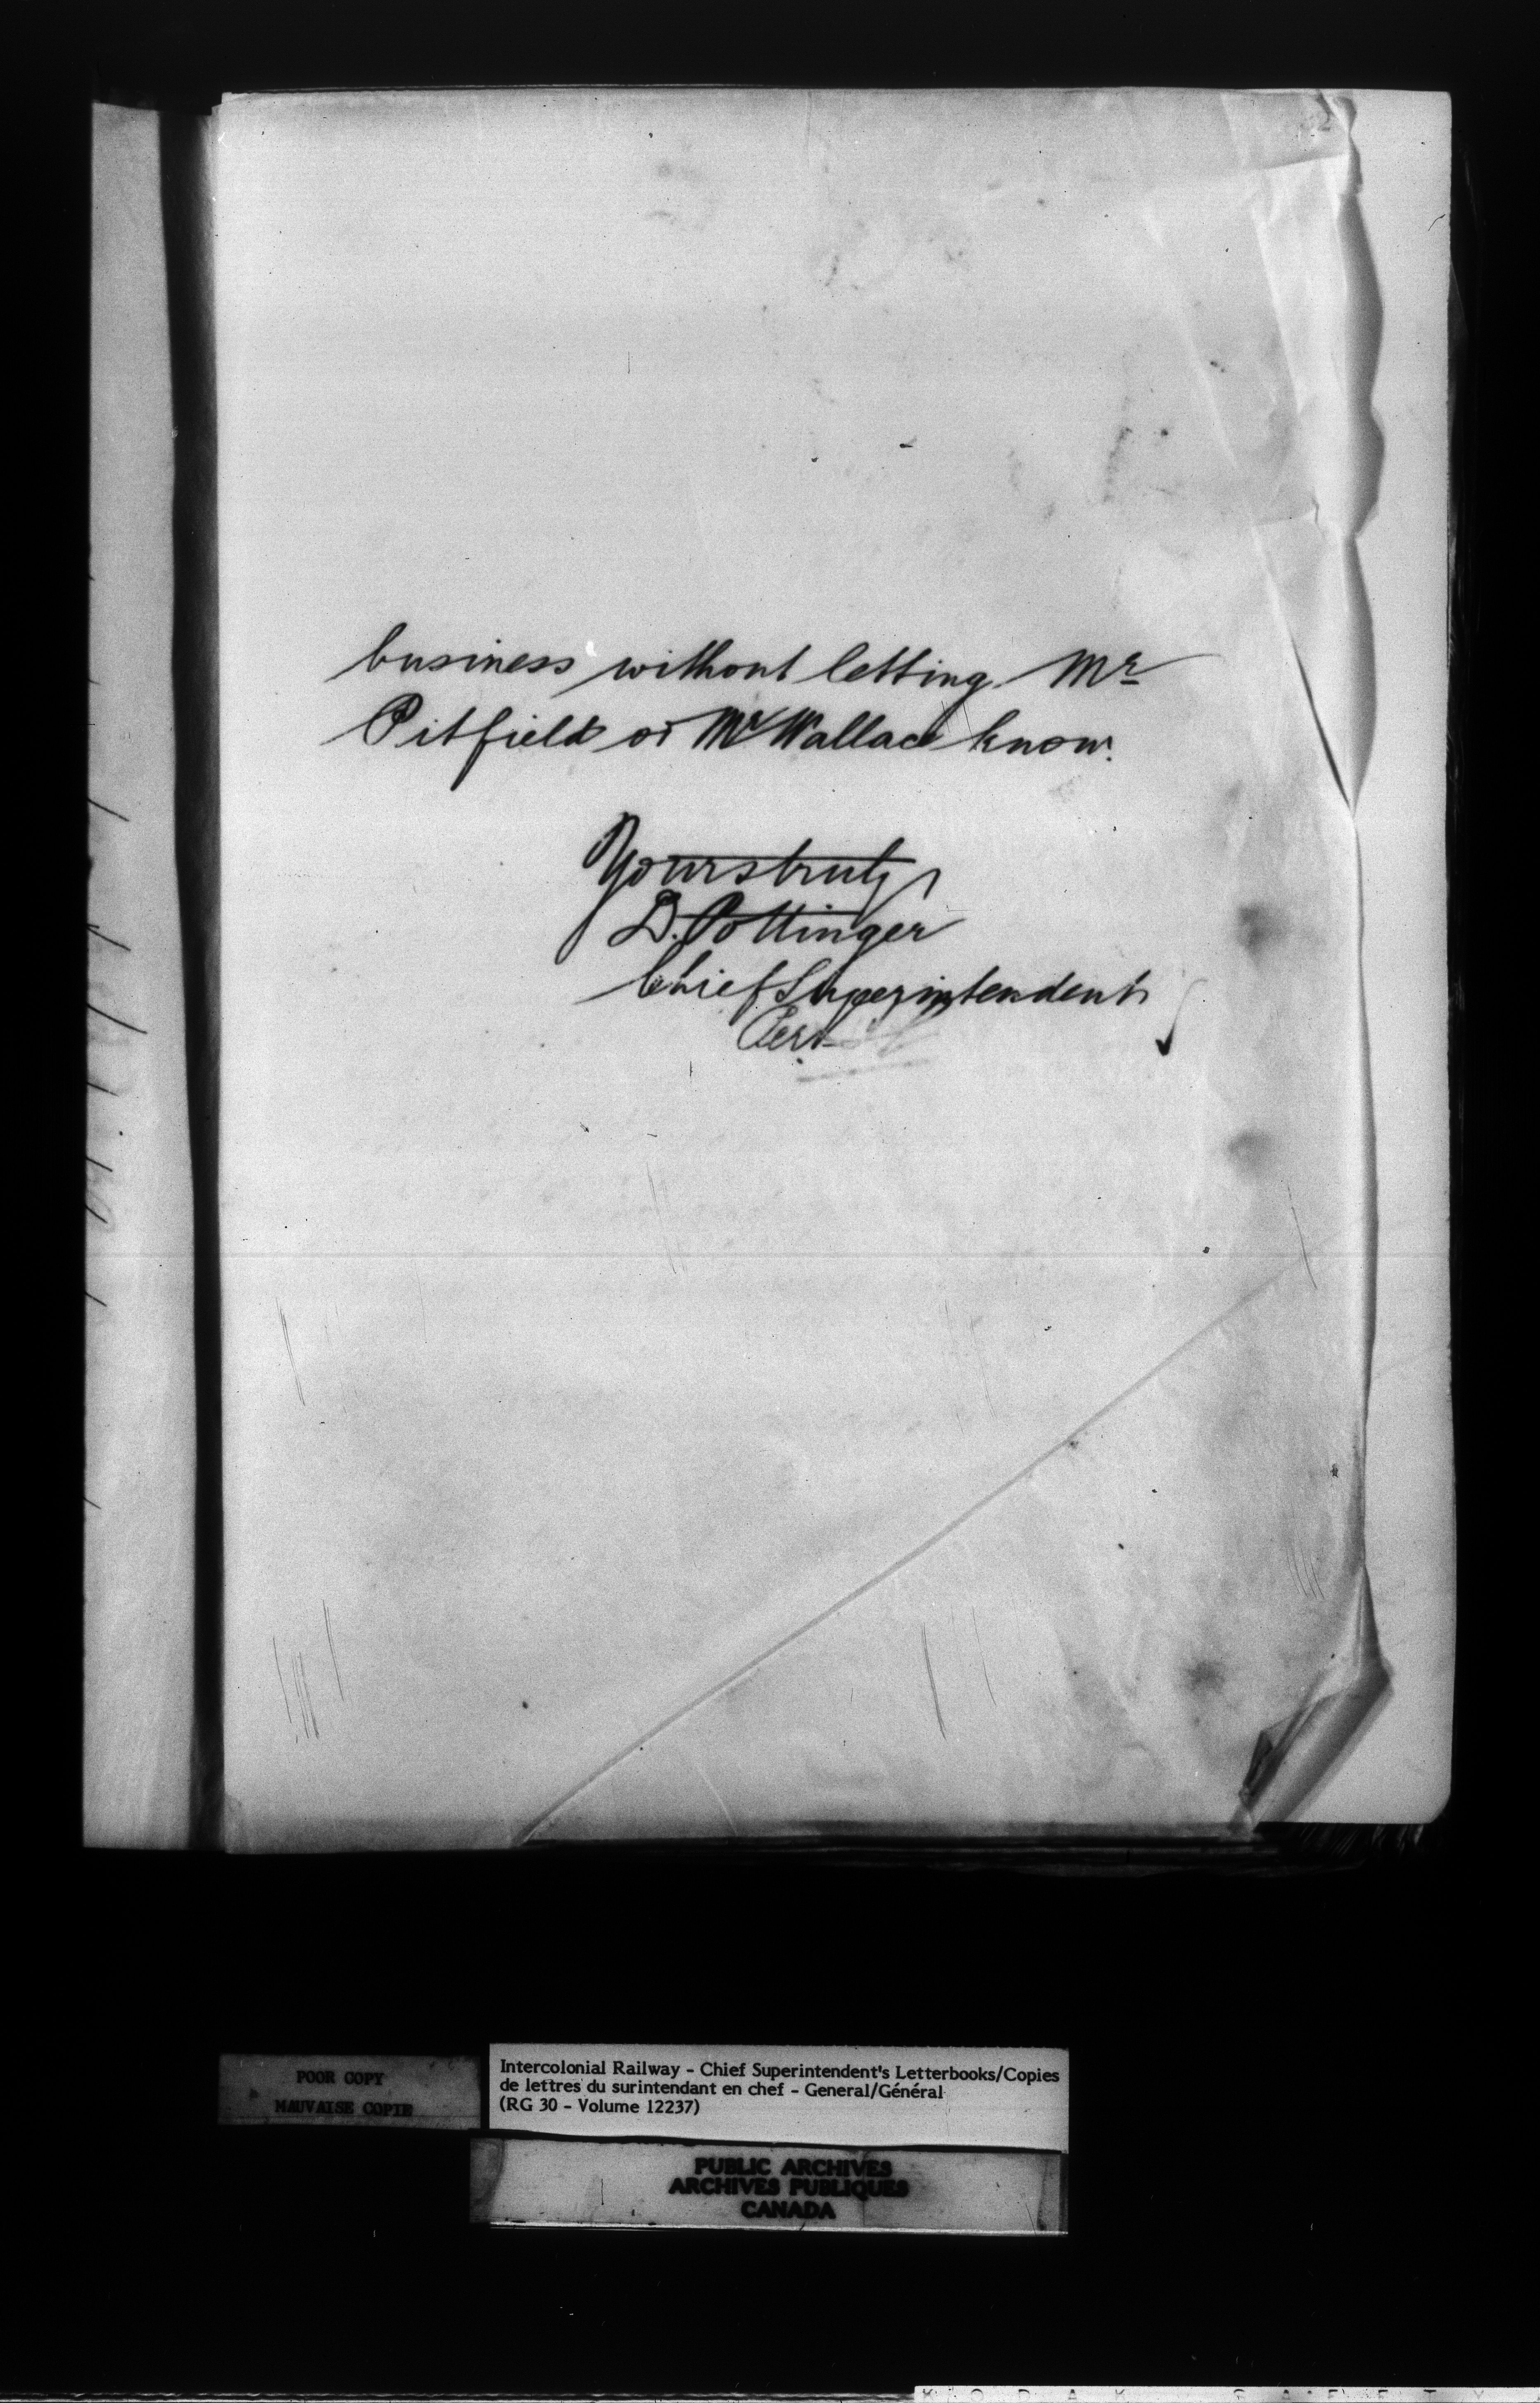 business without letting Mr
Pitfield or Mr Wallace know.
Yours truly
D. Pottinger
Chief Superintendent
Per
POOR COPY
MAUVAISE COPIE
Intercolonial Railway - Chief Superintendent's Letterbooks/Copies
de lettres du surintendant en chef - General/Général
(RG 30 - Volume 12237)
PUBLIC ARCHIVES
ARCHIVES PUBLIQUES
CANADA
KODAK SAFETY